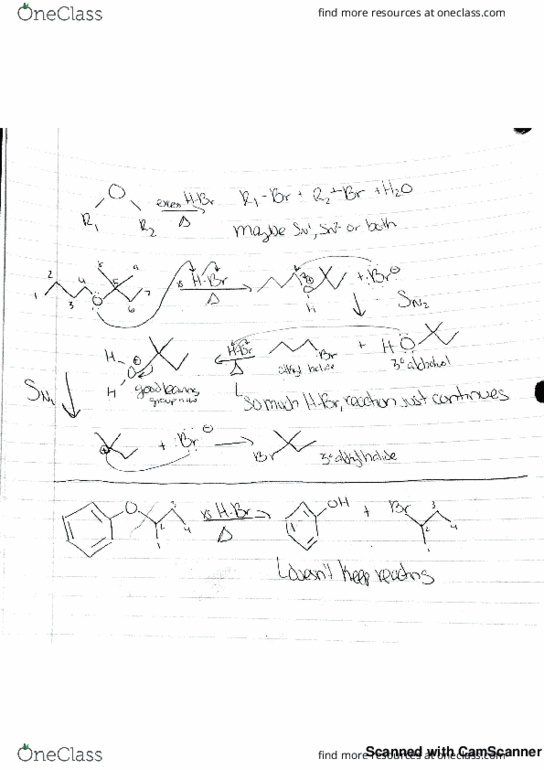 OneClass
find more resources at oneclass.com
O
R1 R2
excess H-Br
Δ
R1-Br + R2-Br + H2O
maybe SN1, SN2 or both
1 2 3 4 5 6 7
xs H-Br
Δ
+ :Br⊖
H
SN2
H
H
O⊕
good leaving
group now
H-Br
Δ
Br
alkyl halide
+ HO
3° alcohol
SN1
So much H-Br, reaction just continues
⊕ + :Br⊖
Br
3° alkyl halide
O
1 2 3 4
xs H-Br
Δ
OH
+
Br
1 2 3 4
doesn't keep reacting
OneClass
find more resources at oneclass.com
Scanned with CamScanner